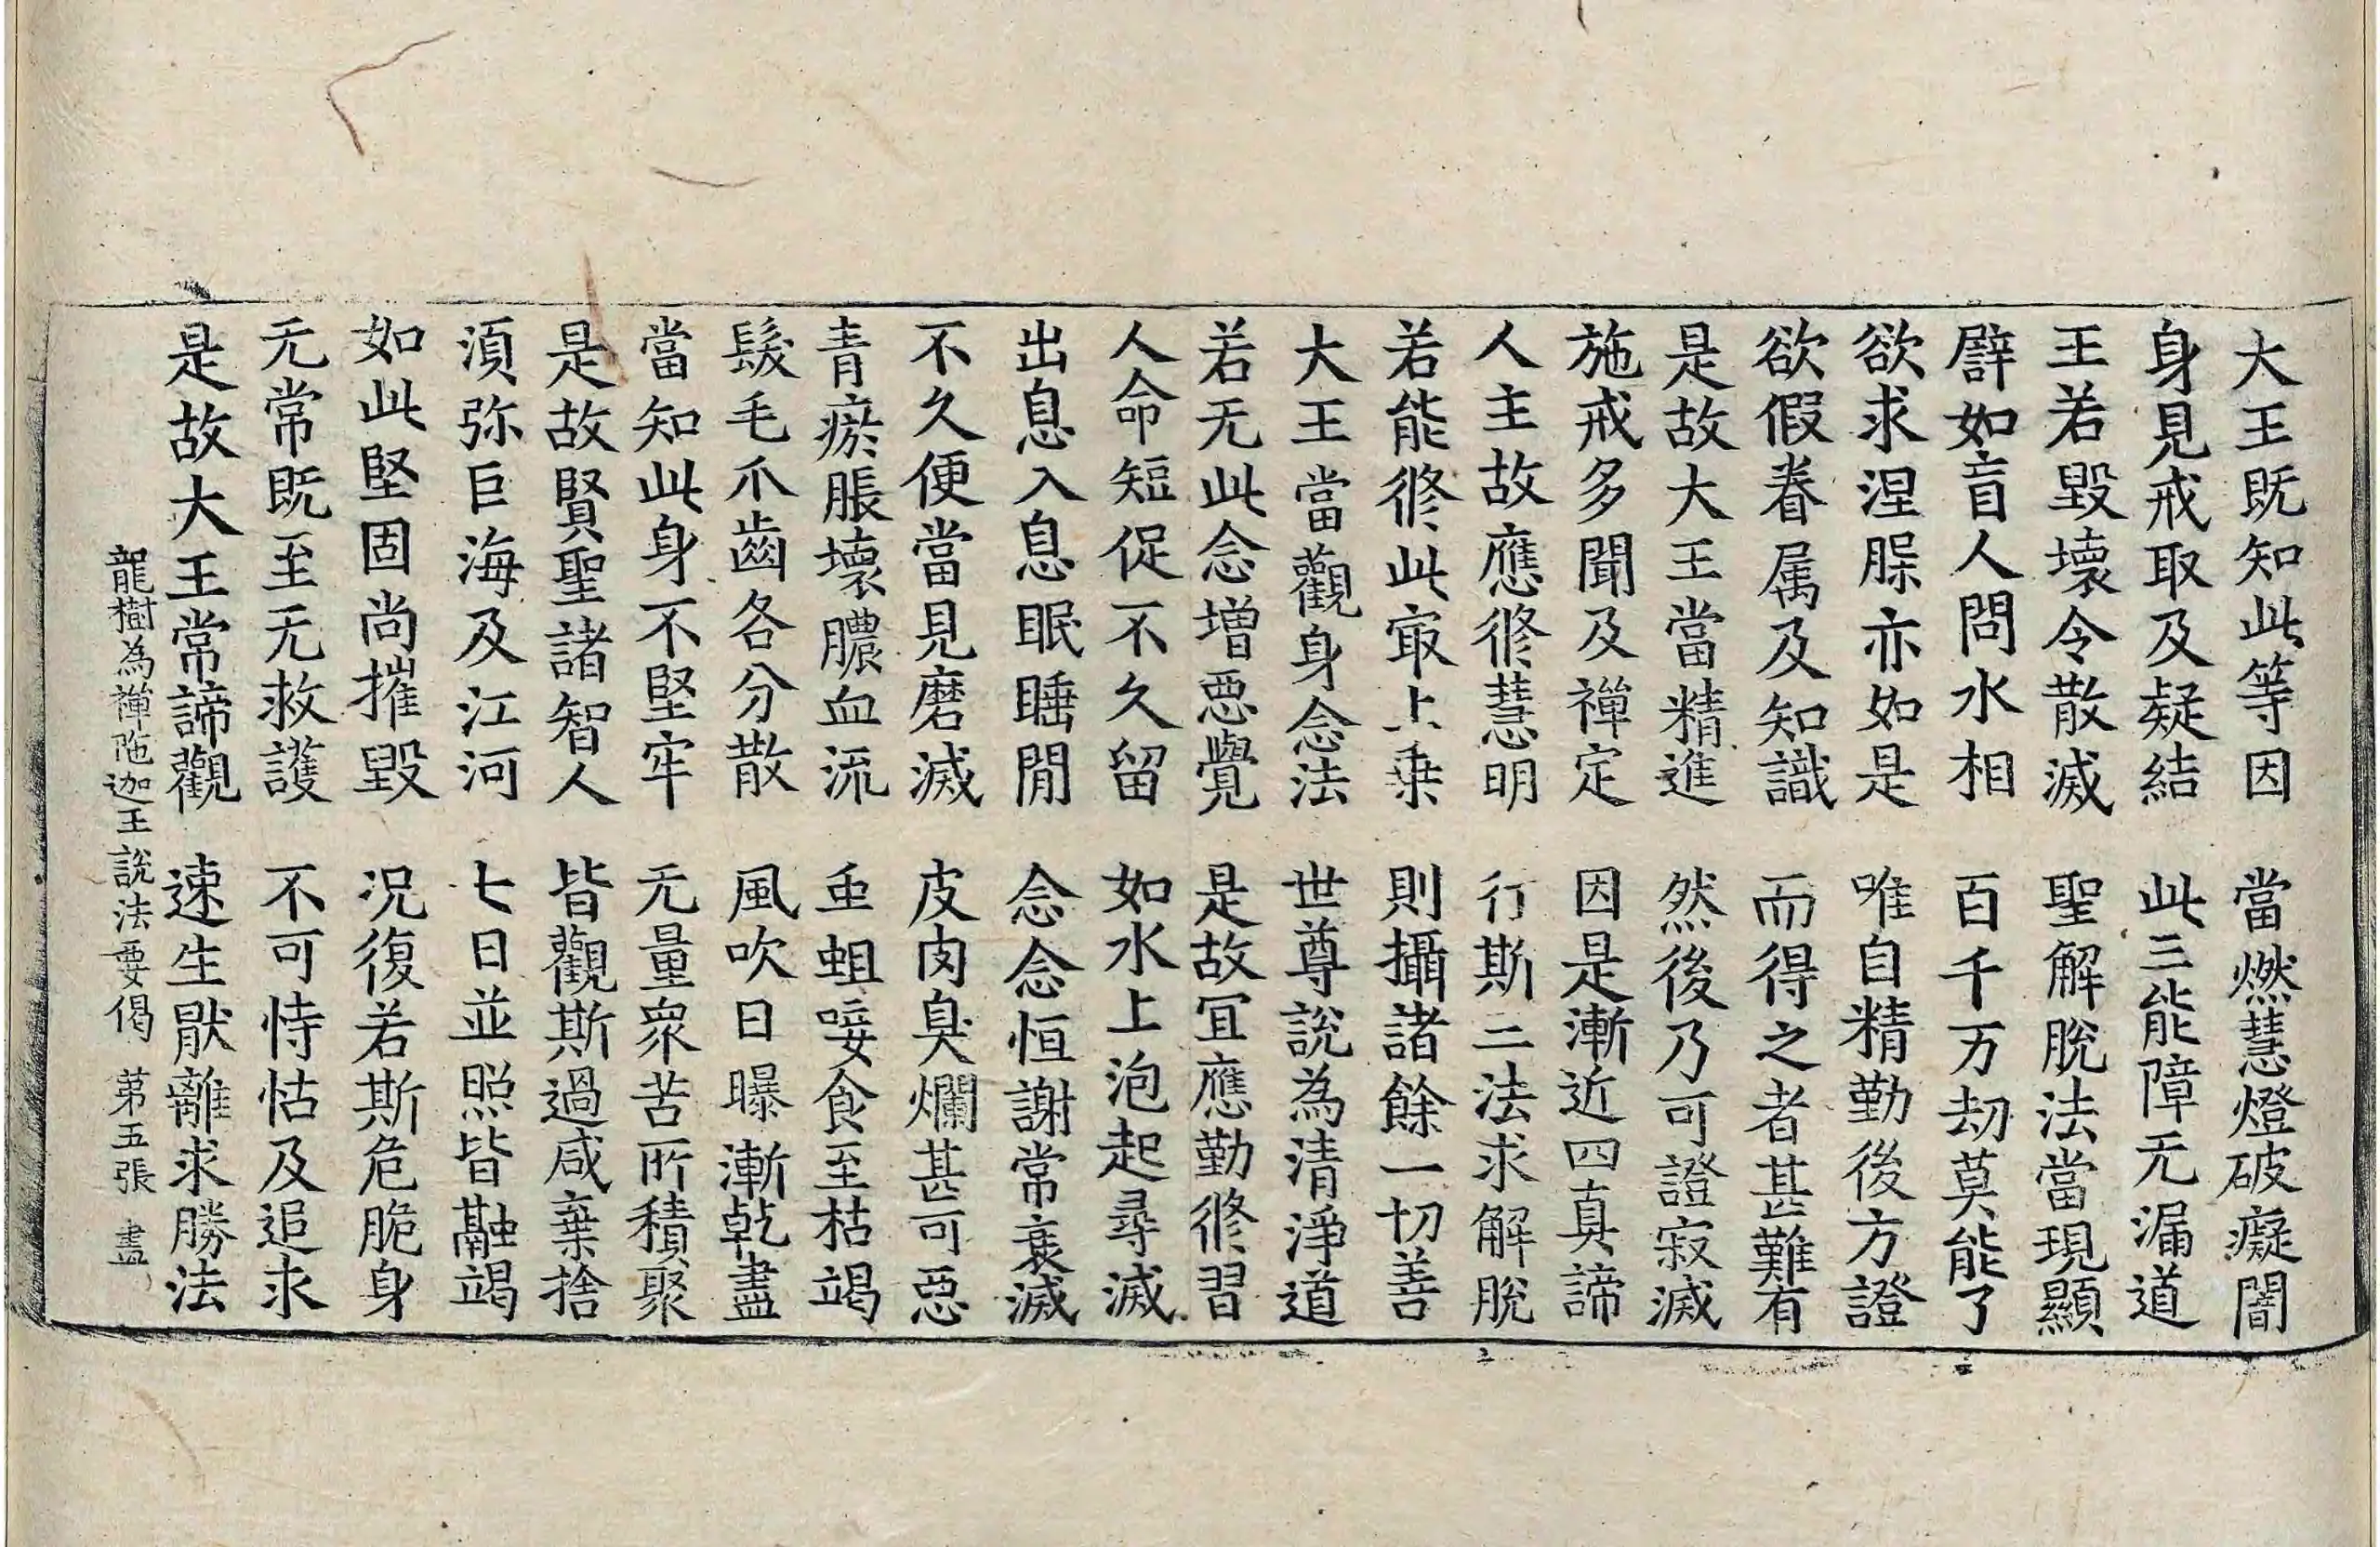 大王既知此等因　當燃慧燈破癡闇
身見戒取及疑結　此三能障无漏道
王若毀壞令散滅　聖解脫法當現顯
譬如盲人問水相　百千万劫莫能了
欲求涅槃亦如是　唯自精勤後方證
欲假眷属及知識　而得之者甚難有
是故大王當精進　然後乃可證寂滅
施戒多聞及禪定　因是漸近四真諦
人主故應修慧明　行斯三法求解脫
若能修此㝡上乗　則攝諸餘一切善
大王當觀身念法　世尊說為清淨道
若无此念增惡覺　是故冝應勤修習
人命短促不久留　如水上泡起尋滅
出息入息眠睡閒　念念恒謝常衰滅
不久便當見磨滅　皮肉臭爛甚可惡
青瘀脹壞膿血流　虫蛆唼食至枯竭
髮毛爪齒各分散　風吹日曝漸乾盡
當知此身不堅牢　无量衆苦所積聚
是故賢聖諸智人　皆觀斯過咸棄捨
須弥巨海及江河　七日並照皆融竭
如此堅固尚摧毀　況復若斯危脆身
无常既至无救護　不可恃怙及追求
是故大王常諦觀　速生猒離求勝法
龍樹為禪陁迦王說法要偈　第五張　盡